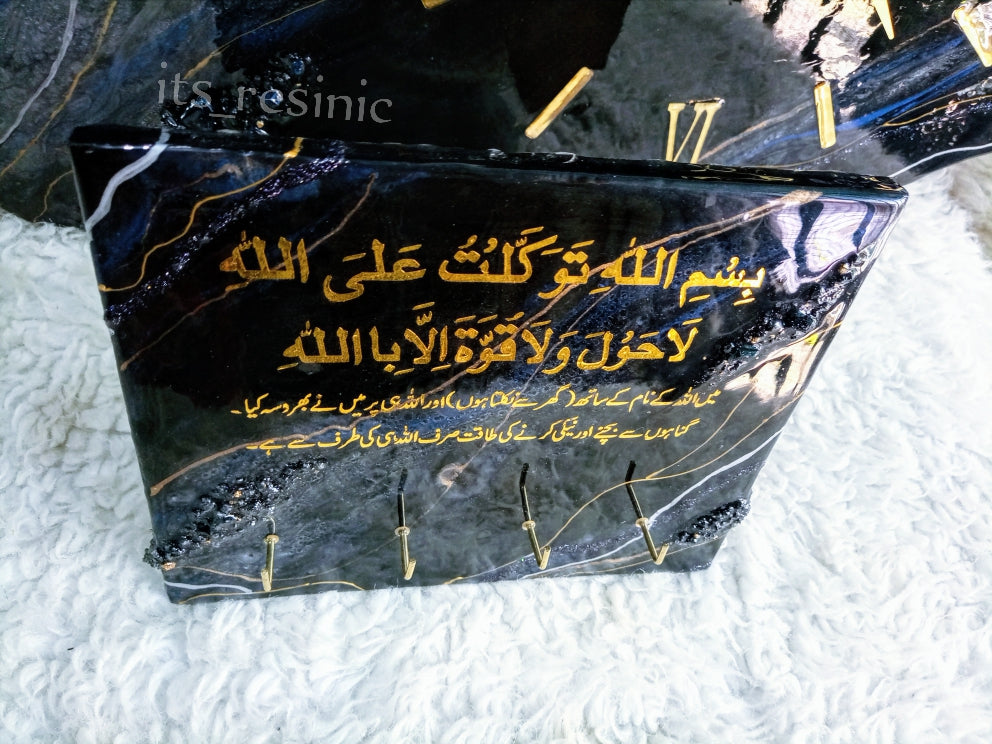 its_resinic
VI
بِسْمِ اللهِ تَوَكَّلْتُ عَلیَ الله
لَا حَوْلَ وَلَا قُوَّةَ اِلَّا بِا الله
میں اللہ کے نام کے ساتھ (گھر سے نکلتا ہوں) اور اللہ ہی پر میں نے بھروسہ کیا۔
گناہوں سے بچنے اور نیکی کرنے کی طاقت صرف اللہ ہی کی طرف سے ہے۔